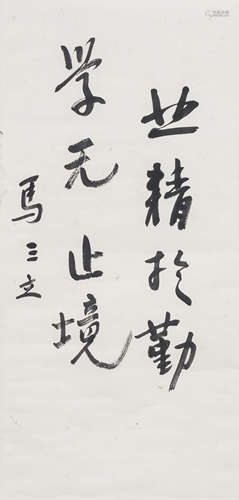 业精於勤
学无止境
馬三立